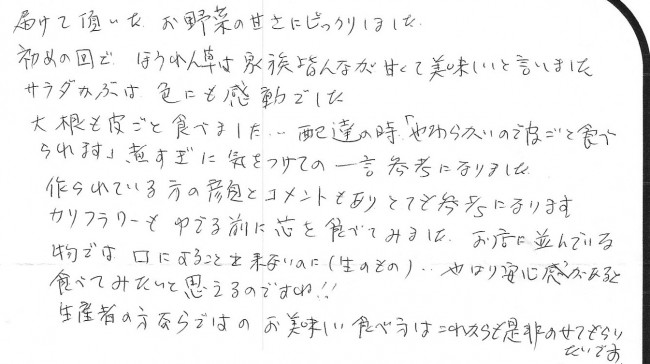 届けて頂いた お野菜の甘さにびっくりしました.
初めの回で ほうれん草は家族皆んなが甘くて美味しいと言いました
サラダかぶは 色にも感動でした
大根も皮ごと食べました… 配達の時「やわらかいので皮ごと食べ
られます」煮すぎに気をつけての一言参考になりました.
作られている方の顔とコメントもありとても参考になります
カリフラワーも ゆでる前に芯を食べてみました. お店に並んでいる
物では 口にすること出来ないのに(生のもの)‥ やはり安心感があると
食べてみたいと思えるのですね!!
生産者の方ならではの お美味しい食べ方はこれからも是非のせてもらい
たいです